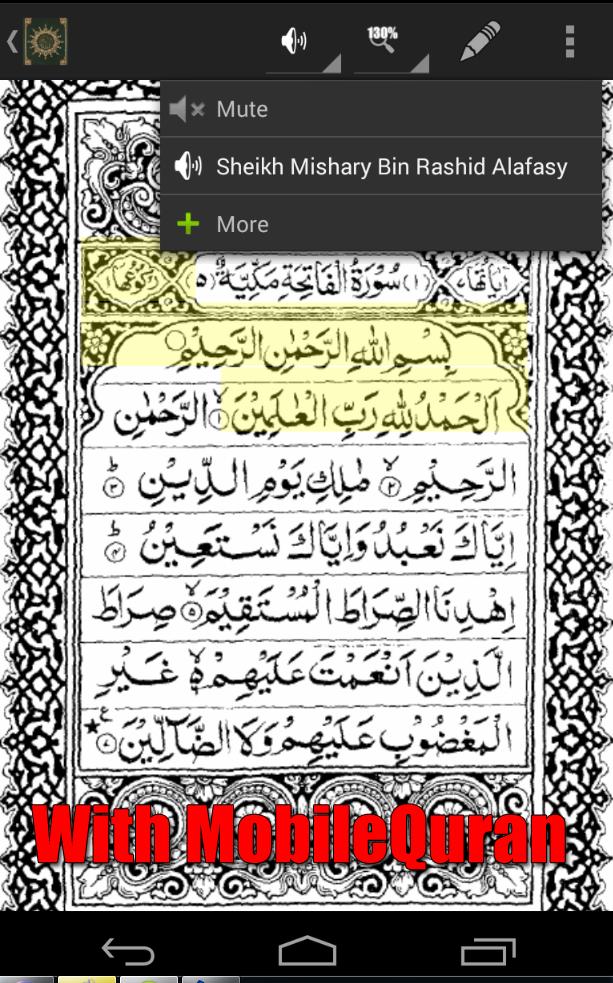 130%
Mute
Sheikh Mishary Bin Rashid Alafasy
More
اٰيَاتُهَا ٧ (١) سُوْرَةُ الْفَاتِحَةِ مَكِّيَّةٌ (٥) رُكُوْعُهَا ١
بِسْمِ اللّٰهِ الرَّحْمٰنِ الرَّحِيْمِ
اَلْحَمْدُ لِلّٰهِ رَبِّ الْعٰلَمِيْنَ ۙ﴿١﴾ الرَّحْمٰنِ
الرَّحِيْمِ ۙ﴿٢﴾ مٰلِكِ يَوْمِ الدِّيْنِ ؕ﴿٣﴾
اِيَّاكَ نَعْبُدُ وَاِيَّاكَ نَسْتَعِيْنُ ؕ﴿٤﴾
اِهْدِنَا الصِّرَاطَ الْمُسْتَقِيْمَ ۙ﴿٥﴾ صِرَاطَ
الَّذِيْنَ اَنْعَمْتَ عَلَيْهِمْ ۙ۬﴿٦﴾ غَيْرِ
الْمَغْضُوْبِ عَلَيْهِمْ وَلَا الضَّآلِّيْنَ ﴿٧﴾ ع
With MobileQuran